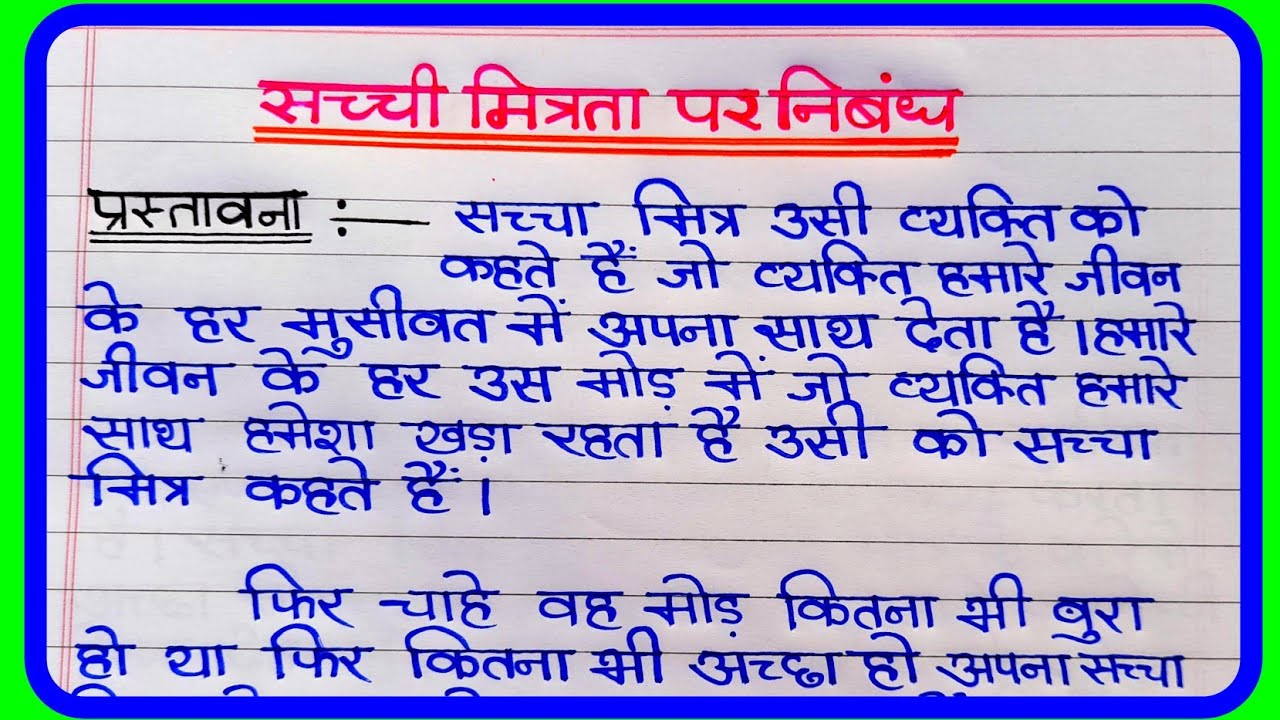 सच्ची मित्रता पर निबंध
प्रस्तावना :— सच्चा मित्र उसी व्यक्ति को
कहते हैं जो व्यक्ति हमारे जीवन
के हर मुसीबत में अपना साथ देता है।हमारे
जीवन के हर उस मोड़ में जो व्यक्ति हमारे
साथ हमेशा खड़ा रहता है उसी को सच्चा
मित्र कहते हैं।
फिर चाहे वह मोड़ कितना भी बुरा
हो या फिर कितना भी अच्छा हो अपना सच्चा